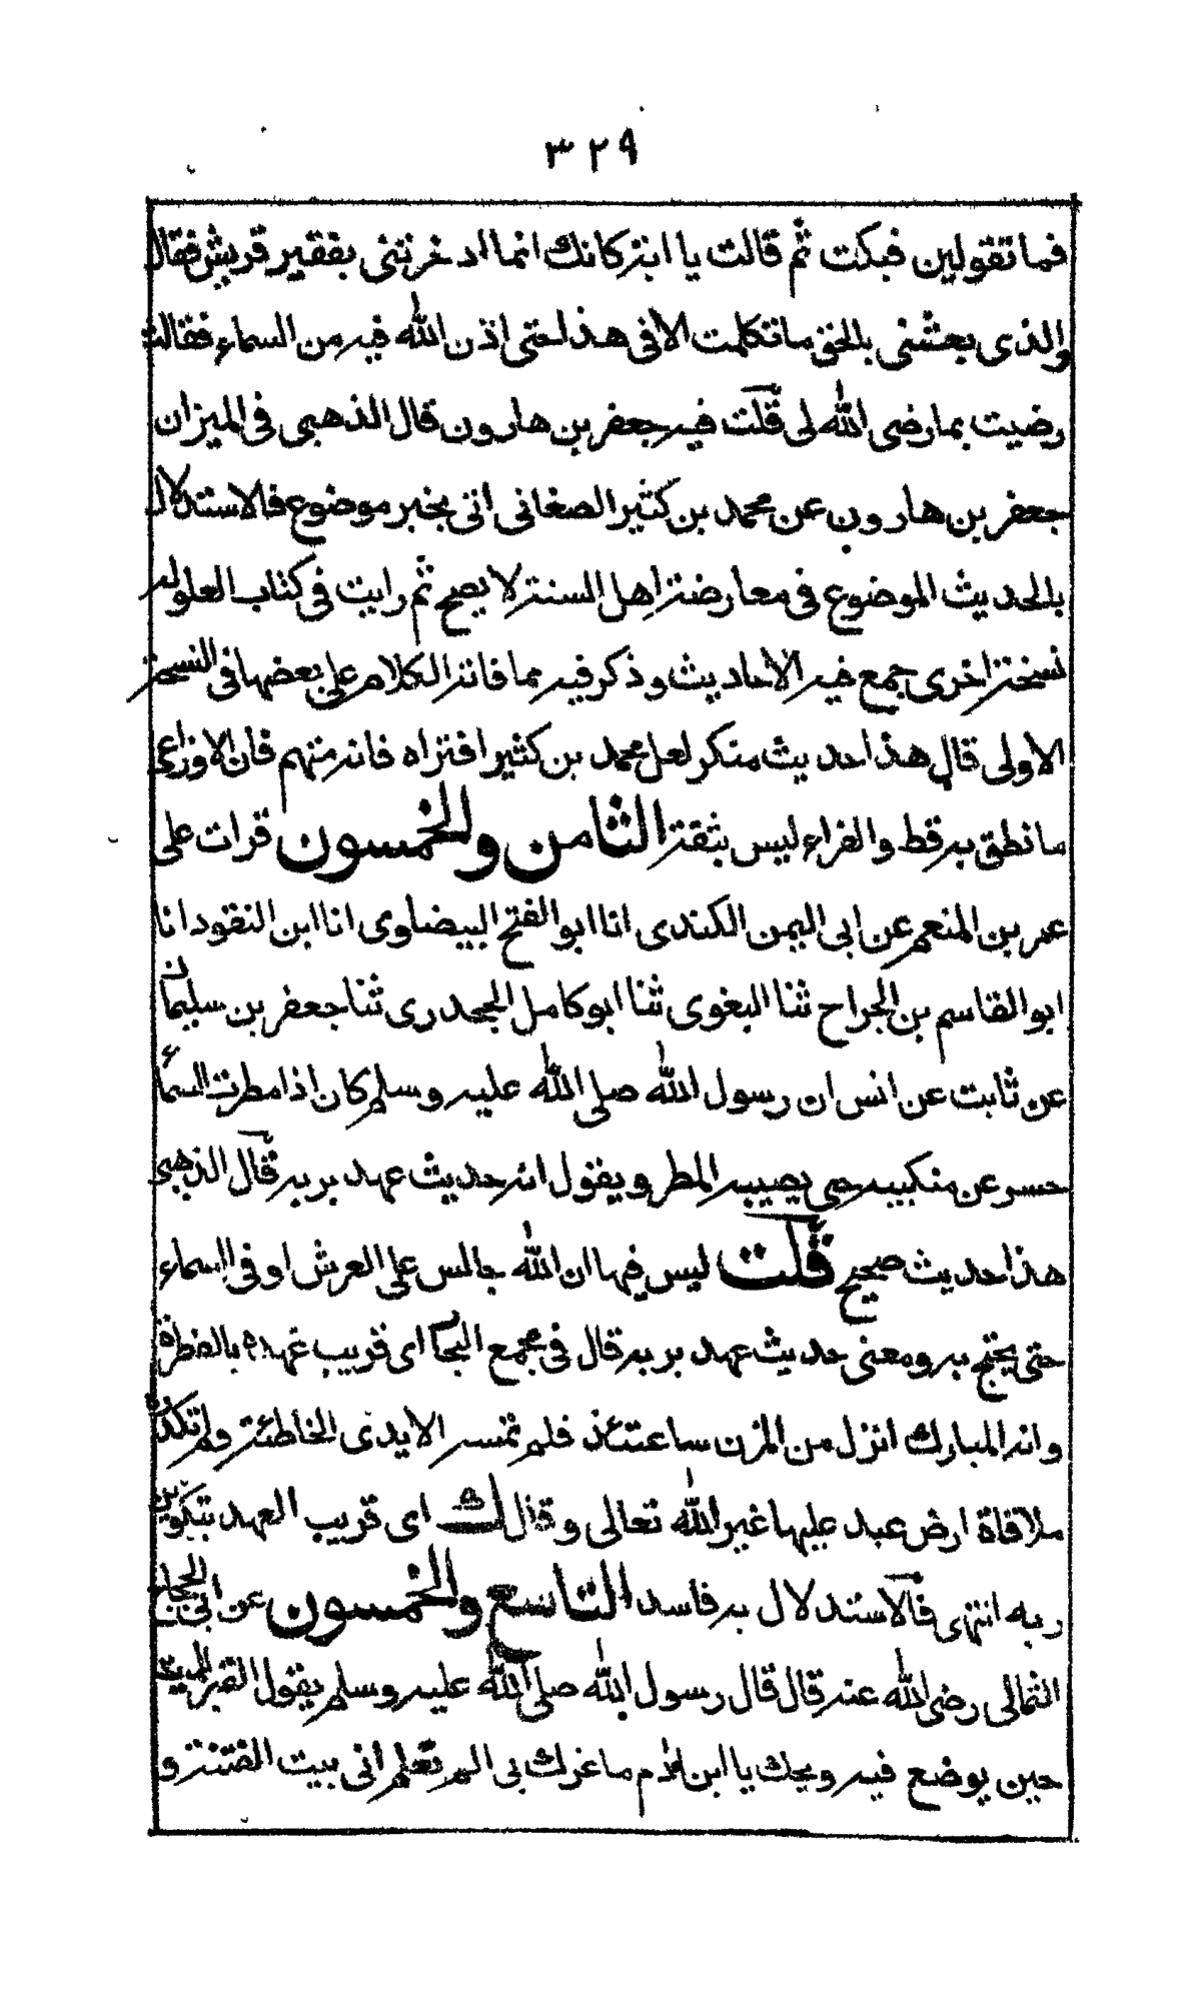 ٣٢٩
فما تقولين فبكت ثم قالت يا ابتر كانك انما ادخرتنى بفقير قريش فقال
والذى بعثنى بالحق ما تكلمت الا فى هذا حتى اذن الله فيه من السماء فقالت
رضيت بما رضى الله لى قلت فيه جعفر بن هارون قال الذهبى فى الميزان
جعفر بن هارون عن محمد بن كثير الصغانى اتى بخبر موضوع فالاستدلال
بالحديث الموضوع فى معارضة اهل السنة لا يصح ثم رايت فى كتاب العلو له
نسخة اخرى جمع فيه الاحاديث وذكر فيه مما فاته الكلام على بعضها فى النسخة
الاولى قال هذا حديث منكر لعل محمد بن كثير افتراه فانه متهم فان الاوزاعى
ما نطق به قط والفراء ليس بثقة الثامن والخمسون قرات على
عمر بن المنعم عن ابى اليمن الكندى انا ابو الفتح البيضاوى انا ابن النقود انا
ابو القاسم بن الجراح ثنا البغوى ثنا ابو كامل الجحدرى ثنا جعفر بن سليمان
عن ثابت عن انس ان رسول الله صلى الله عليه وسلم كان اذا مطرت السماء
حسر عن منكبيه حتى يصيبه المطر ويقول انه حديث عهد بربه قال الذهبى
هذا حديث صحيح قلت ليس فيها ان الله جالس على العرش او فى السماء
حتى يحتج به ومعنى حديث عهد بربه قال فى مجمع البحار اى قريب عهده بالفطرة
وانه المبارك انزل من المزن ساعتئذ فلم تمسه الايدى الخاطئة ولم تكدره
ملاقاة ارض عبد عليها غير الله تعالى وقال ك اى قريب العهد بتكوين
ربه انتهى فالاستدلال به فاسد التاسع والخمسون عن ابى الحجاج
الثمالى رضى الله عنه قال قال رسول الله صلى الله عليه وسلم يقول القبر للميت
حين يوضع فيه ويحك يا ابن ادم ما غرك بى الم تعلم انى بيت الفتنة و